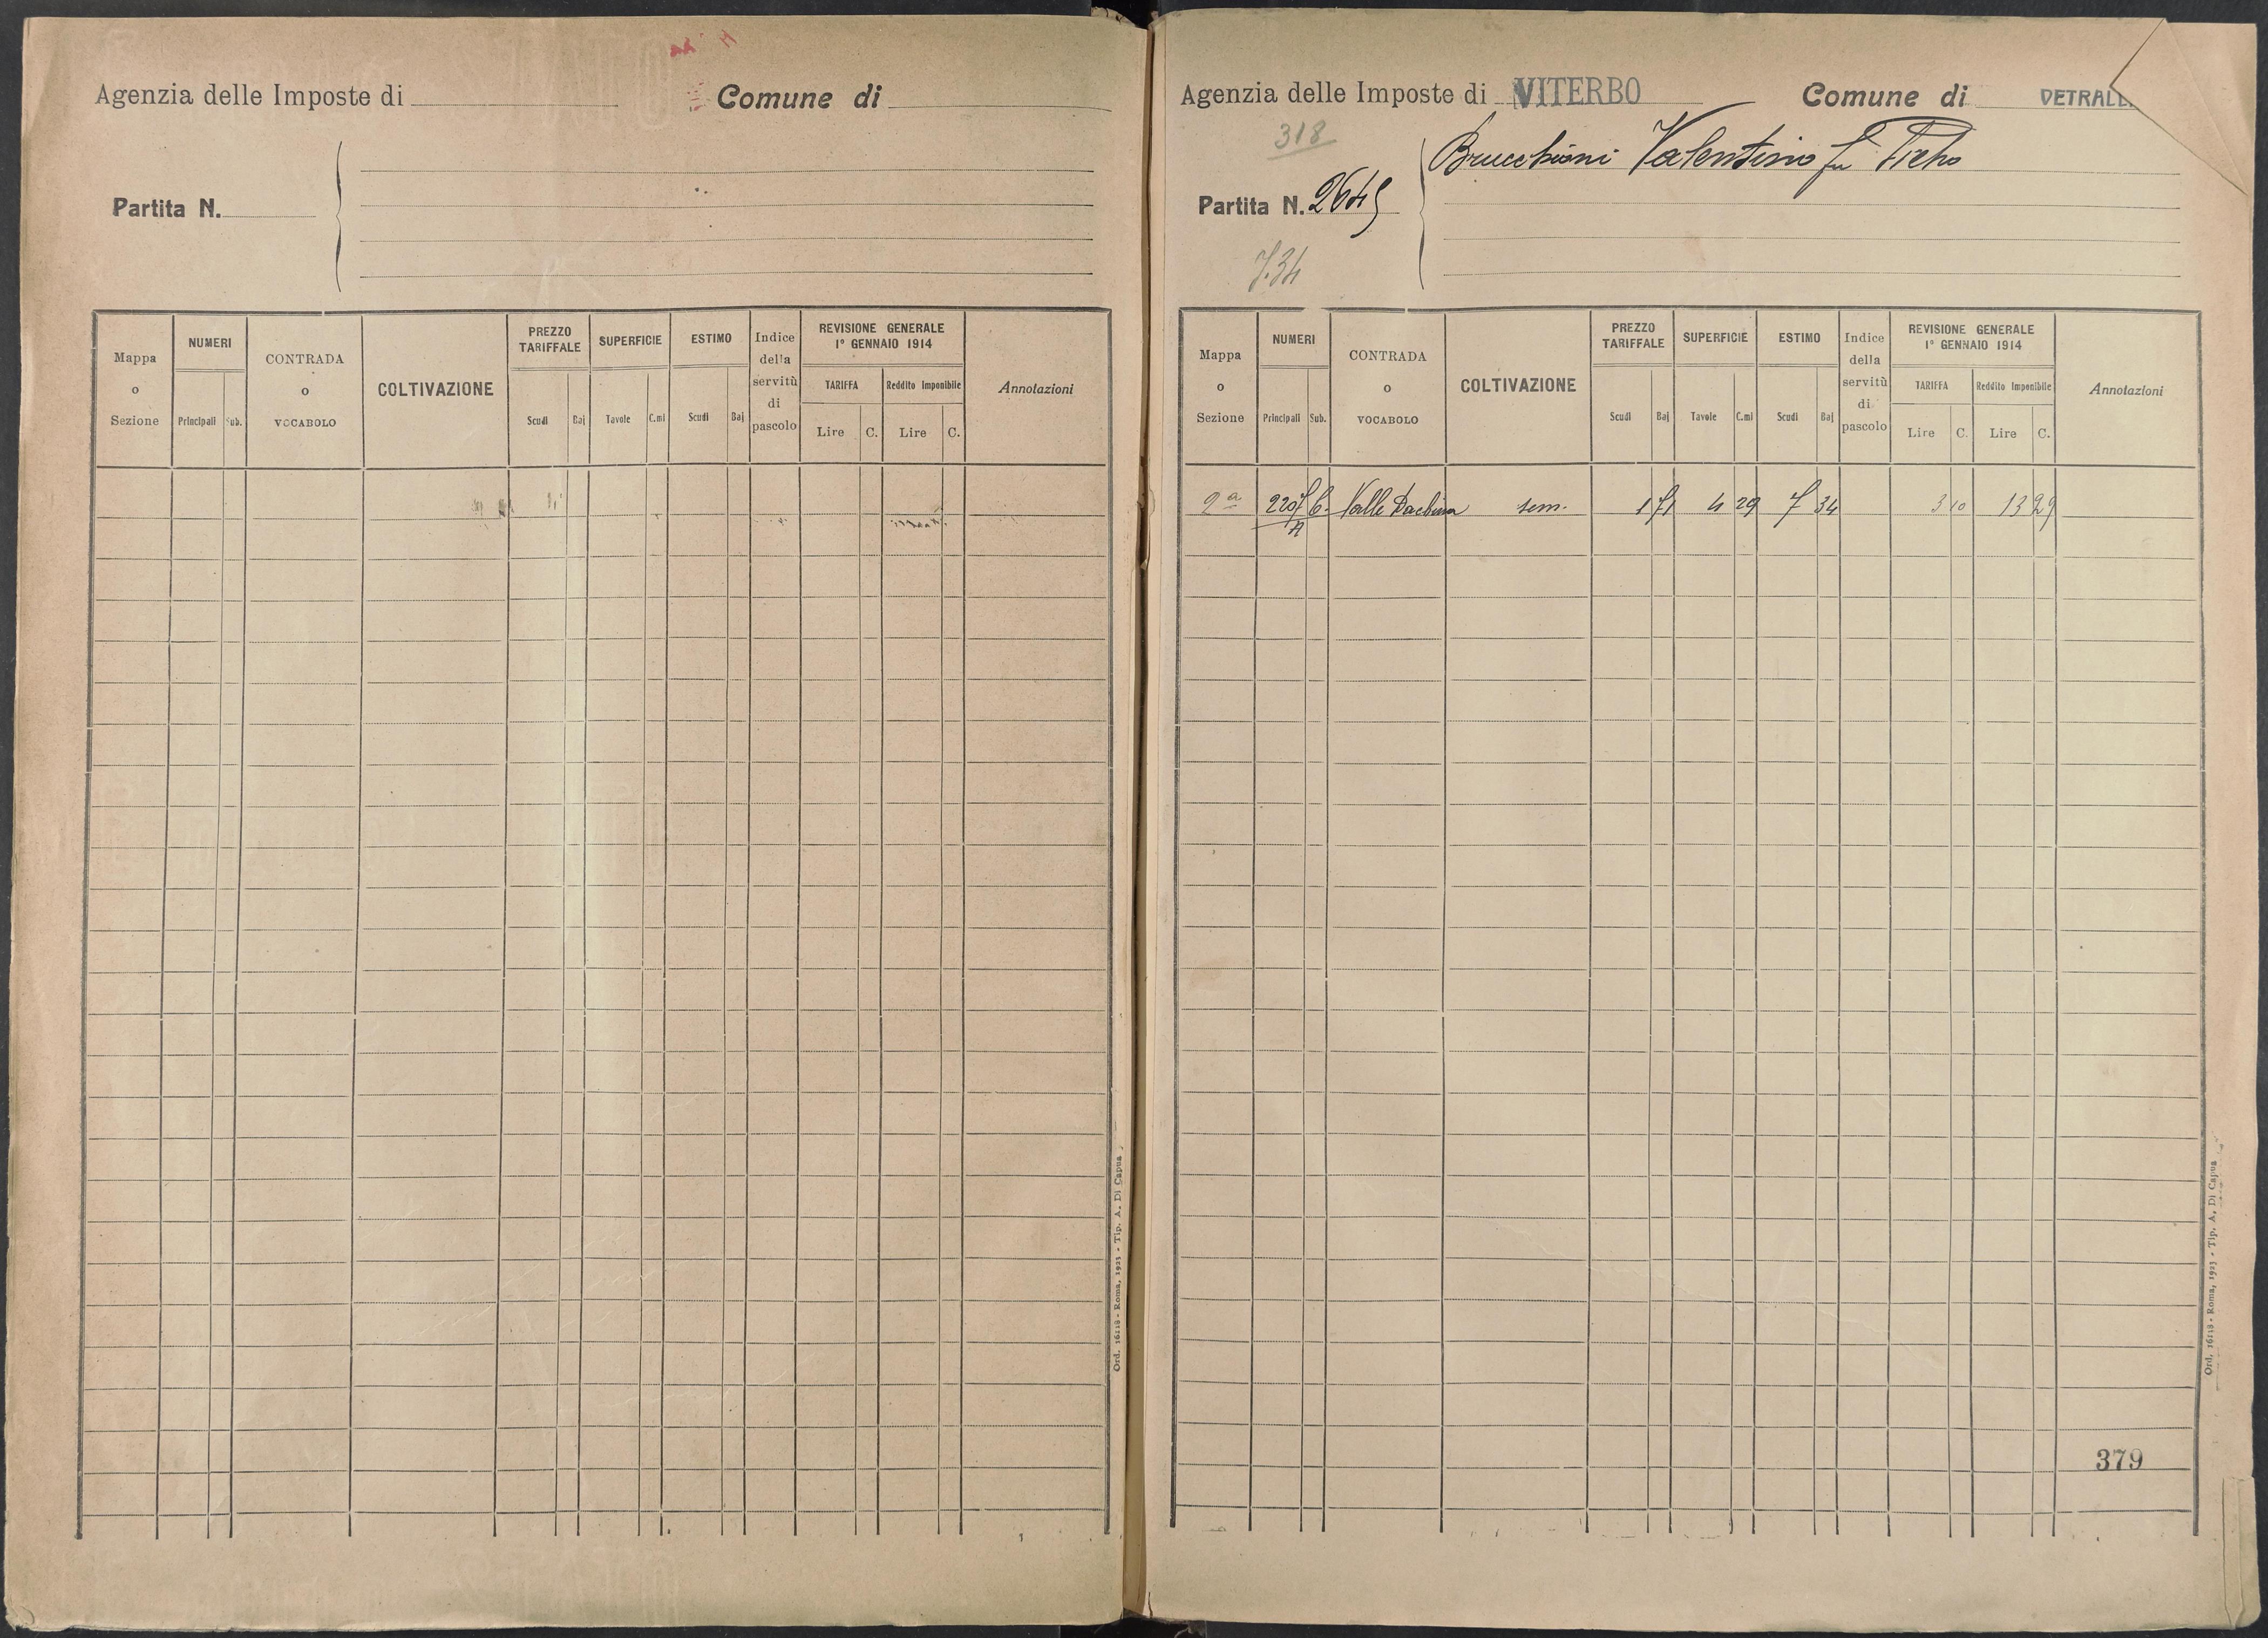 Agenzia delle Imposte di
Comune di
Partita N.
Mappa o Sezione
NUMERI
Principali
Sub.
CONTRADA o VOCABOLO
COLTIVAZIONE
PREZZO TARIFFALE
Scudi
Baj
SUPERFICIE
Tavole
C.mi
ESTIMO
Scudi
Baj
Indice della servitù di pascolo
REVISIONE GENERALE
1° GENNAIO 1914
TARIFFA
Reddito Imponibile
Lire
C.
Lire
C.
Annotazioni
Ord. 16118 - Roma, 1923 - Tip. A. Di Capua
Agenzia delle Imposte di VITERBO
Comune di VETRALL
318
Valentino fu
Partita N. 2645
7.34
Mappa o Sezione
NUMERI
Principali
Sub.
CONTRADA o VOCABOLO
COLTIVAZIONE
PREZZO TARIFFALE
Scudi
Baj
SUPERFICIE
Tavole
C.mi
ESTIMO
Scudi
Baj
Indice della servitù di pascolo
REVISIONE GENERALE
1° GENNAIO 1914
TARIFFA
Reddito Imponibile
Lire
C.
Lire
C.
Annotazioni
2a Valle sem. 1 71 4 29 7 34 3 10 13 29
379
Ord. 16118 - Roma, 1923 - Tip. A. Di Capua